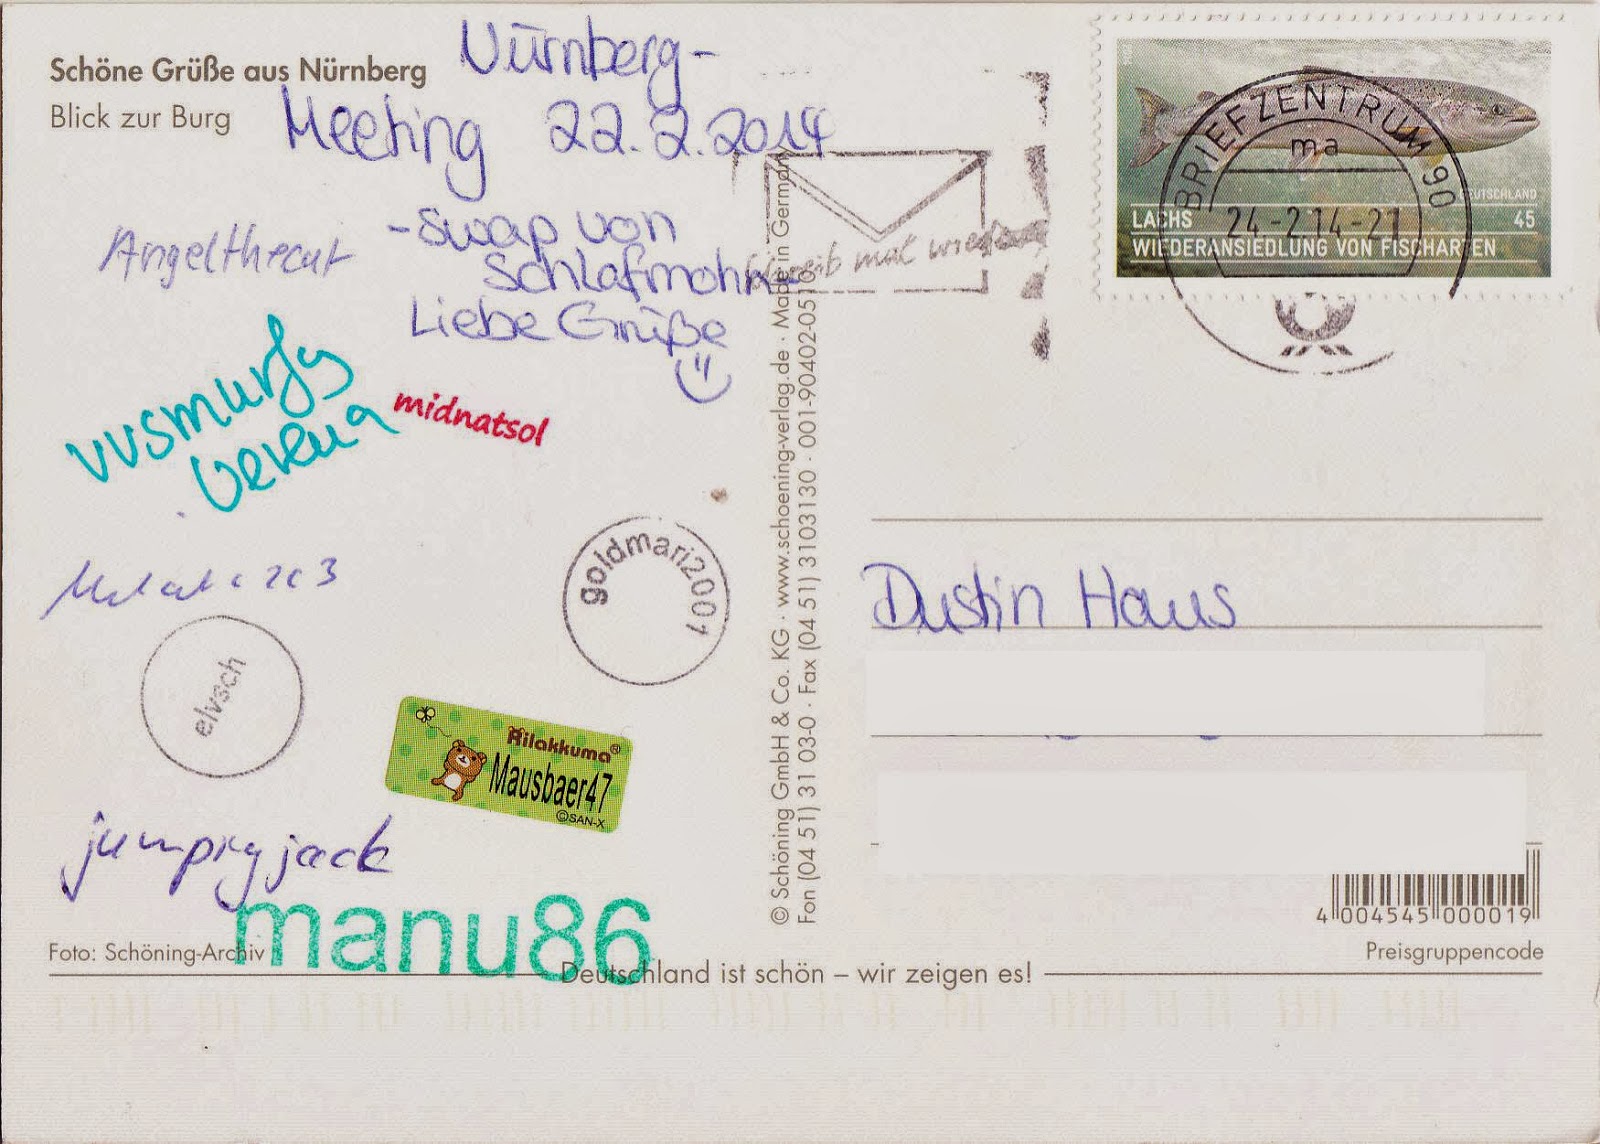 Schöne Grüße aus Nürnberg
Blick zur Burg
Nürnberg-
Meeting 22.2.2014
-Swap von
Schlafmohn-
Liebe Grüße
Angelthecat
vvsmurfy
verena
midnatsol
goldmari2001
elvsch
Rilakkuma®
Mausbaer47
©SAN-X
jumpingjack
manu86
Foto: Schöning-Archiv
Deutschland ist schön – wir zeigen es!
© Schöning GmbH & Co. KG · www.schoening-verlag.de · Made in Germany
Fon (04 51) 31 03-0 · Fax (04 51) 3103130 · 001-90402-0510
Schreib mal wieder
BRIEFZENTRUM 90
ma
24.-2.14-21
DEUTSCHLAND
LACHS 45
WIEDERANSIEDLUNG VON FISCHARTEN
Dustin Haus
4 004545 000019
Preisgruppencode